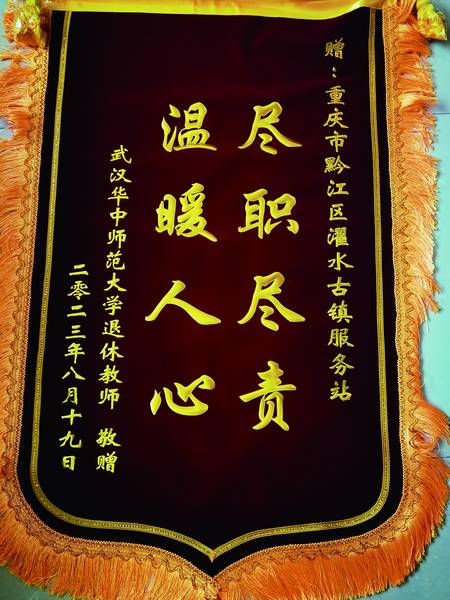 赠：重庆市黔江区濯水古镇服务站
尽职尽责
温暖人心
武汉华中师范大学退休教师 敬赠
二零二三年八月十九日